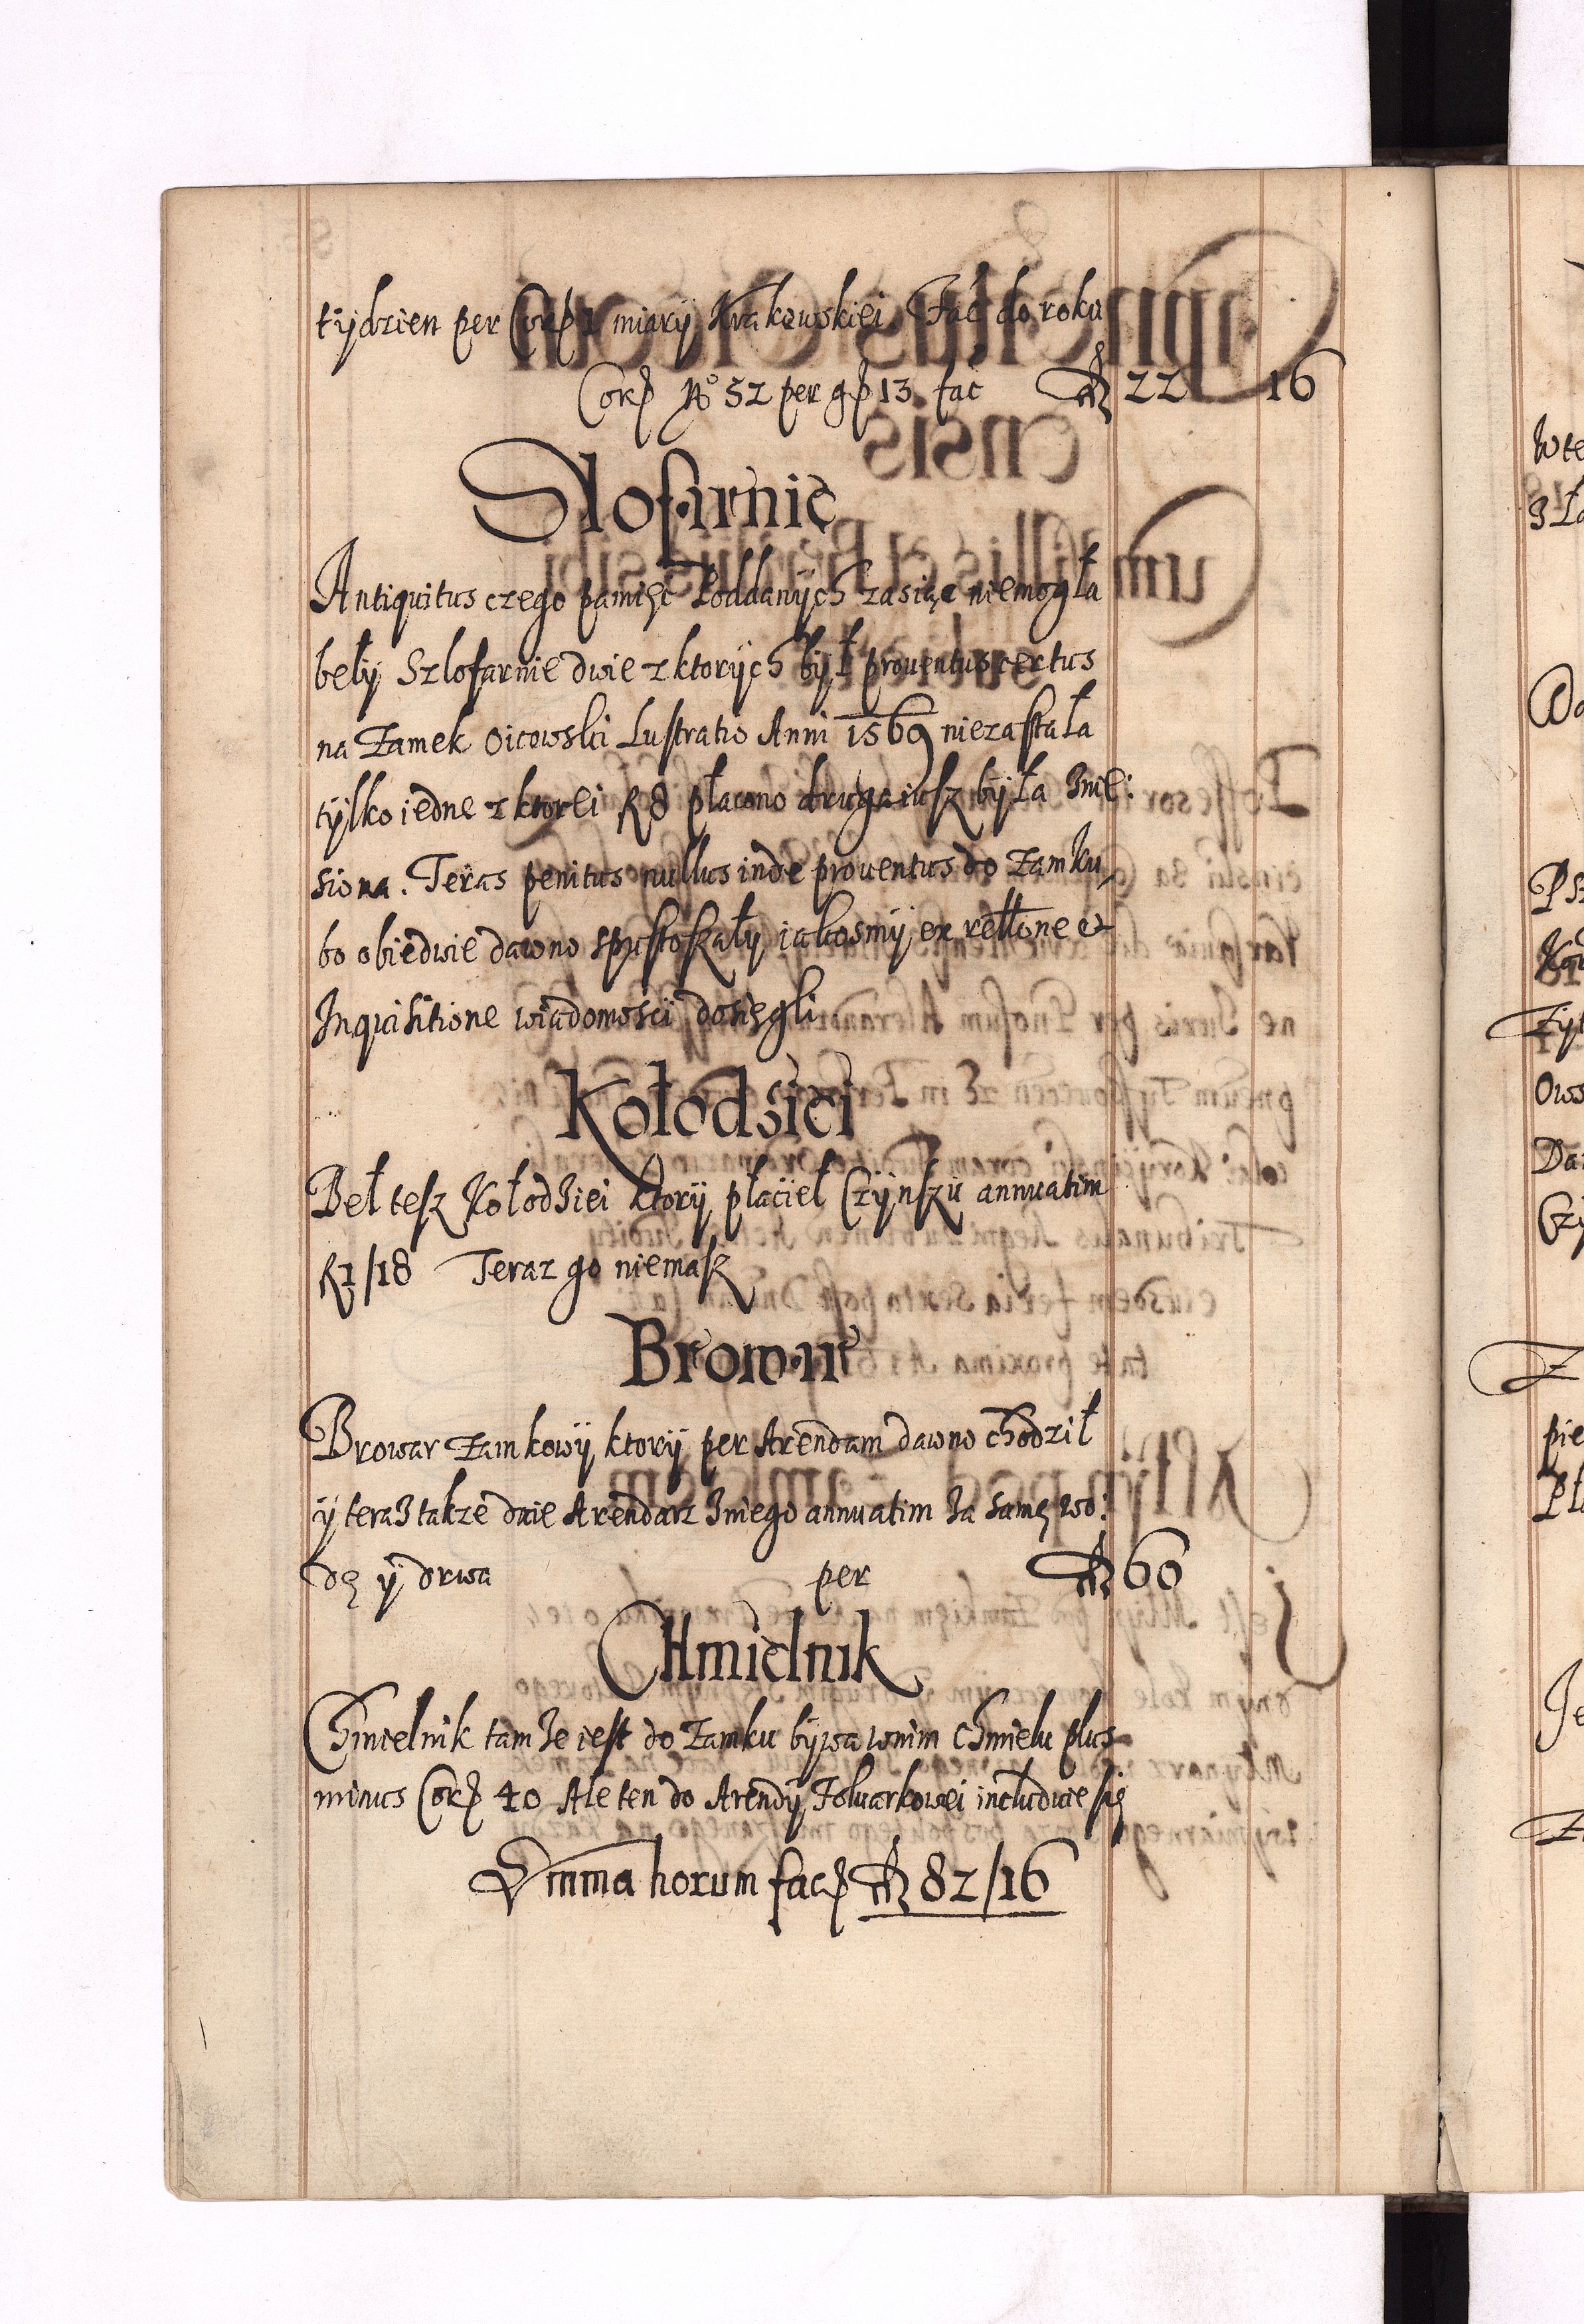 tydzien per Cor: 1 miary Krakowskiei. Fac do roku
Cor: No 52 per g: 13 fac fl 22 16
Slofarnie
Antiquitus czego pamięc Poddanych zasiąc niemogła
beły Szlofarnie dwie z ktorych był prouentus certus
na Zamek Oicowski Lustratio Anni 1569 niezastała
tylko iedne z ktorei fl 8 płacono druga iusz była Inie:
siona. Teras penitus nullus inde prouentus do Zamku,
bo obiedwie dawno spustoszały iakosmy ex rellone et
Inquisitione wiadomosci dosięgli.
Kołodziei
Beł tesz Kołodziei ktory płacieł Czynszu annuatim
fl 1/18 Teraz go niemasz
Browar
Browar Zamkowy ktory per Arendam dawno chodził
y teraz takze daie Arendarz zniego annuatim za samę wo:
dę y drwa per fl 60
Chmielnik
Chmielnik tamze iest do Zamku bywa wnim chmielu plus
minus Cor: 40 Ale ten do Arendy Folwarkowei includuie się
Summa horum fac: fl 82/16